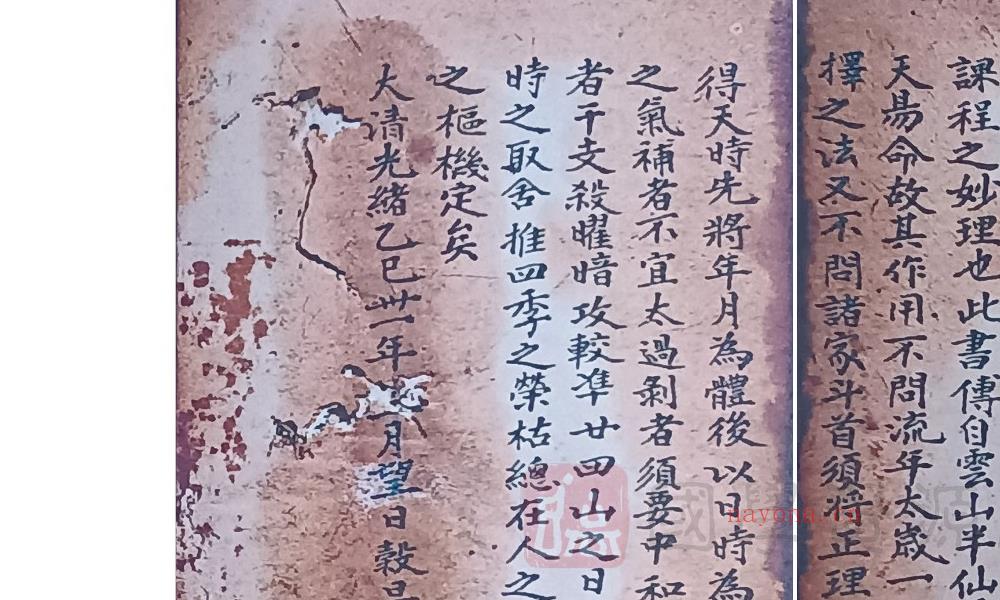 課程之妙理也此書傳自雲山半仙
天易命故其作用不問流年太歲一
擇之法又不問諸家斗首須將正理
得天時先將年月為體後以日時為
之氣補者不宜太過剝者須要中和
者干支殺曜暗攻較准廿四山之日
時之取舍推四季之榮枯總在人之
之樞機定矣
大清光緒乙巳卅一年月望日穀旦
nayona.cn